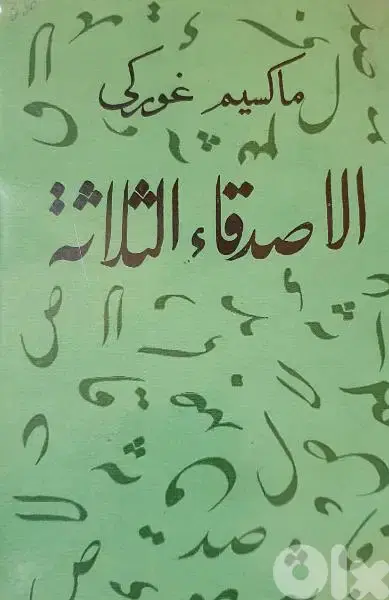 ماكسيم غوركي
الاصدقاء الثلاثة